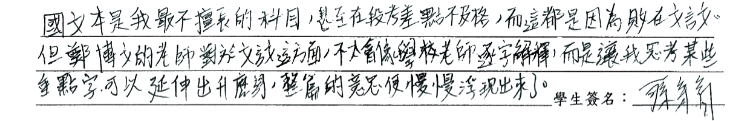 國文本是我最不擅長的科目，甚至在段考差點不及格，而這都是因為敗在文言文。
但鄭博文的老師對於文言文這方面，不太會像學校老師逐字解釋，而是讓我思考某些
重點字可以延伸出什麼詞，整篇的意思便慢慢浮現出來了。 學生簽名：孫